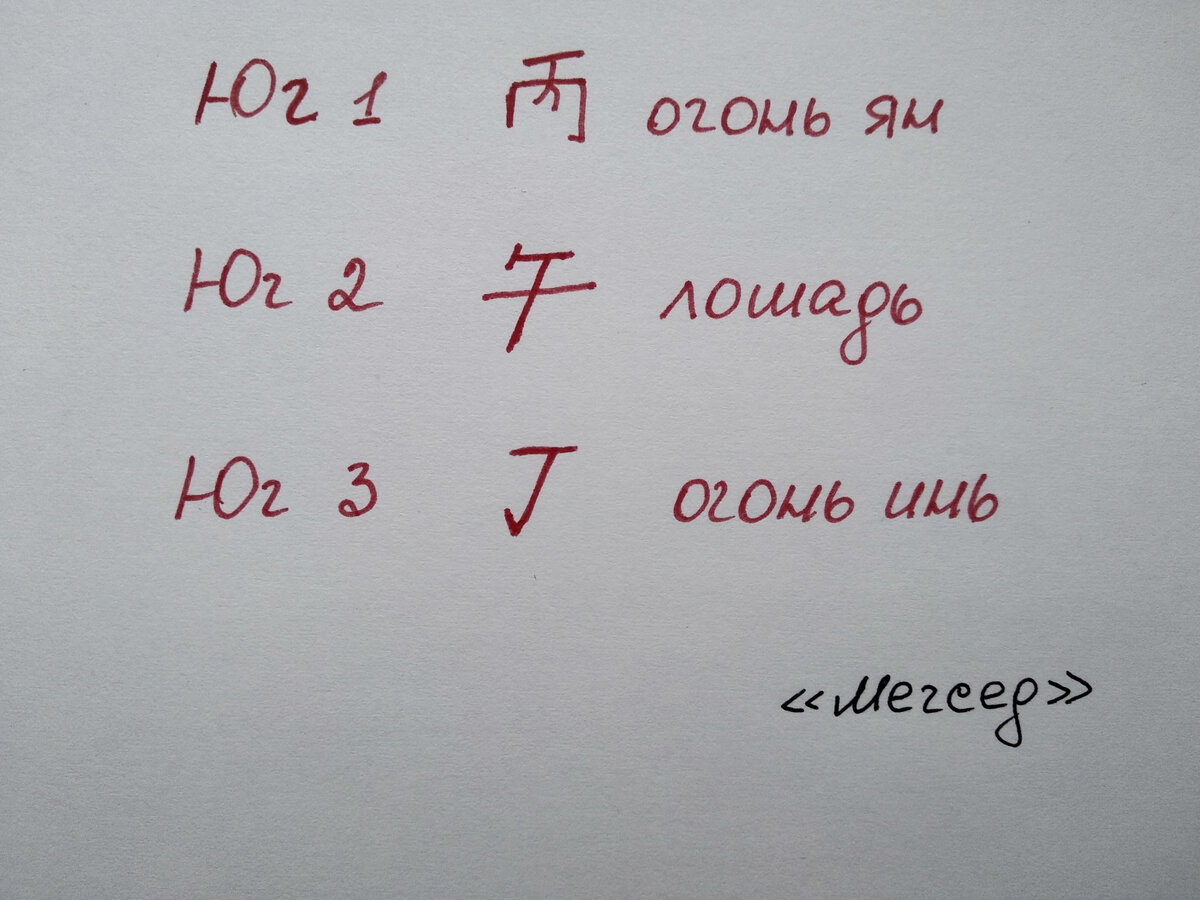 Юг 1 丙 огонь ян
Юг 2 午 лошадь
Юг 3 丁 огонь инь
«Мегсед»